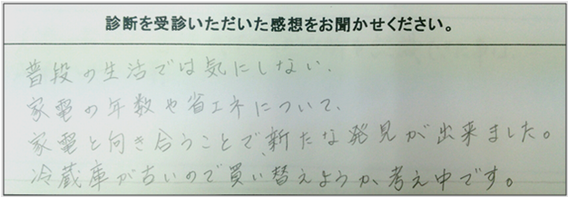 診断を受診いただいた感想をお聞かせください。
普段の生活では気にしない、
家電の年数や省エネについて、
家電と向き合うことで、新たな発見が出来ました。
冷蔵庫が古いので買い替えようか、考え中です。